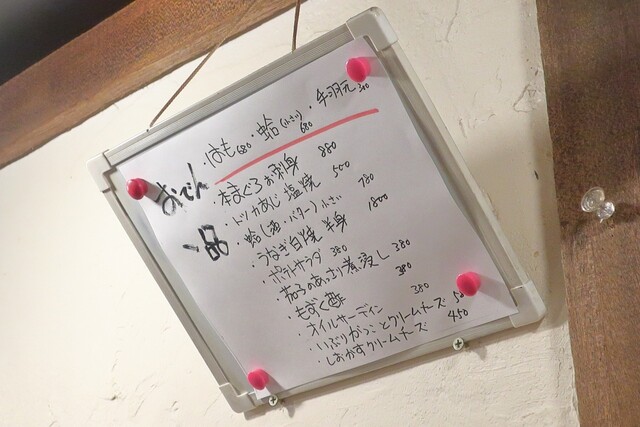 おでん ・はも 680 ・蛤(小さい) 680 ・手羽元 380
一品
・本まぐろお刺身 880
・ドンカあじ 塩焼 500
・蛤(酒・バター)小さい 780
・うなぎ白焼 半身 1800
・ポテトサラダ 380
・茄子のあっさり煮浸し 380
・もずく酢 380
・オイルサーディン 380
・いぶりがっことクリームチーズ 500
・しおかすクリームチーズ 450